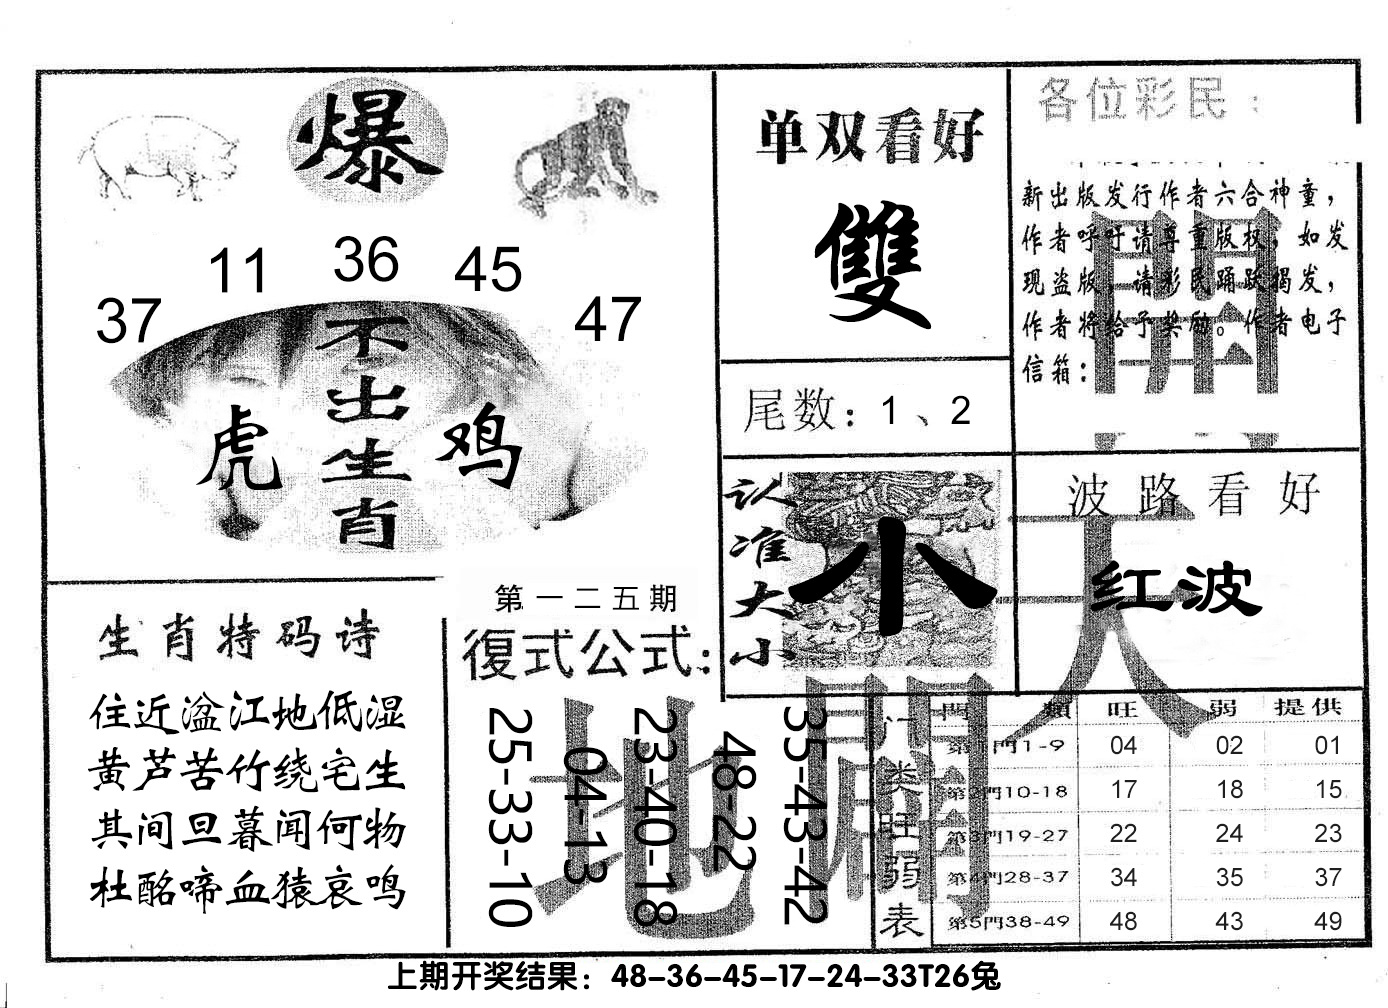 爆
11
36
45
37
47
不出生肖
虎
鸡
单双看好
雙
尾数：1、2
认准大小
小
各位彩民：
新出版发行作者六合神童，
作者呼吁请尊重版权，如发
现盗版，请彩民踊跃揭发，
作者将给予奖励。作者电子
信箱：
波路看好
红波
生肖特码诗
住近湓江地低湿
黄芦苦竹绕宅生
其间旦暮闻何物
杜酩啼血猿哀鸣
第一二五期
復式公式：
25-33-10
04-13
23-40-18
48-22
35-43-42
天
地
門類 旺 弱 提供
门类旺弱表
第1門1-9 04 02 01
第2門10-18 17 18 15
第3門19-27 22 24 23
第4門28-37 34 35 37
第5門38-49 48 43 49
上期开奖结果：48-36-45-17-24-33T26兔